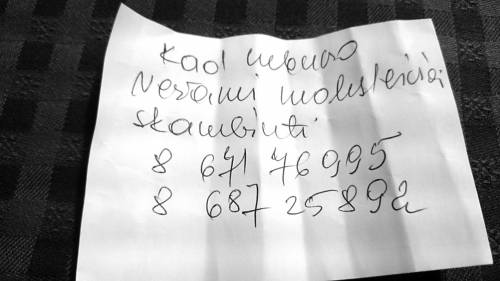 Kad nebuvo
Nerami moksleiviai
skambinti
8 671 76995
8 687 25892